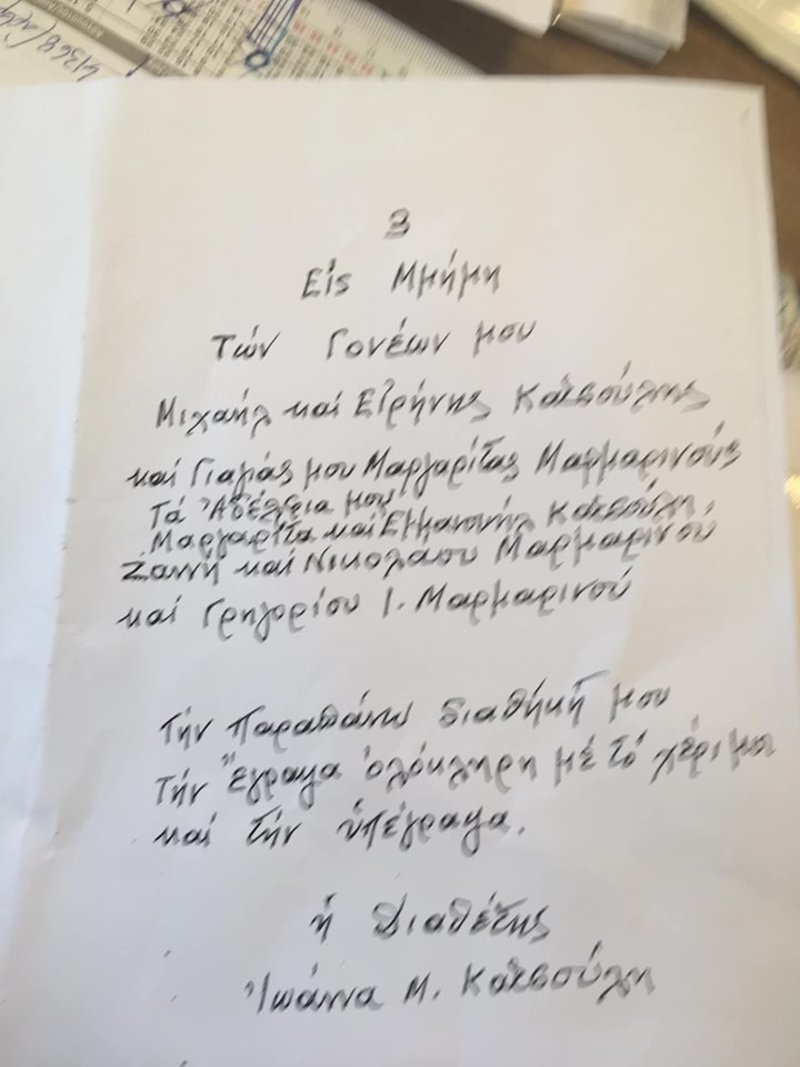 3
Εἰς Μμήμη
Τών Γονέων μου
Μιχαήλ καί Εἰρήνης Κατσούλης
καί Γιαγιάς μου Μαργαρίτας Μαρμαρινούς
Τά Ἀδέλφια μου
Μαργαρίτα καί Ἐμμανουήλ Κατσούλη,
Ζαννή καί Νικολάου Μαρμαρινού
καί Γρηγορίου Ι. Μαρμαρινού
Τήν Παραπάνω διαθήκη μου
Τήν Ἔγραψα ὁλόκληρη μέ τό χέρι μου
καί τήν ὑπέγραψα.
ἡ Διαθέτης
Ἰωάννα Μ. Κατσούλη